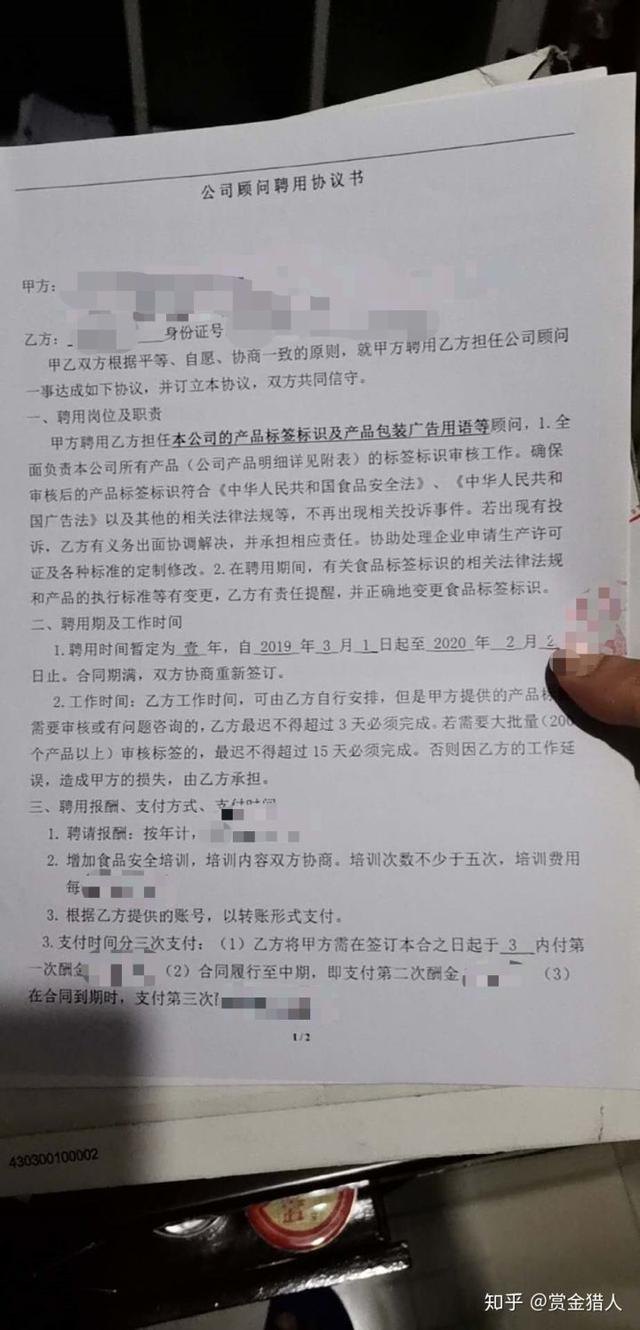 公司顾问聘用协议书
甲方:
乙方: 身份证号
甲乙双方根据平等、自愿、协商一致的原则,就甲方聘用乙方担任公司顾问
一事达成如下协议,并订立本协议,双方共同信守。
一、聘用岗位及职责
甲方聘用乙方担任本公司的产品标签标识及产品包装广告用语等顾问,1.全
面负责本公司所有产品(公司产品明细详见附表)的标签标识审核工作。确保
审核后的产品标签标识符合《中华人民共和国食品安全法》、《中华人民共和
国广告法》以及其他的相关法律法规等,不再出现相关投诉事件。若出现有投
诉,乙方有义务出面协调解决,并承担相应责任。协助处理企业申请生产许可
证及各种标准的定制修改。2.在聘用期间,有关食品标签标识的相关法律法规
和产品的执行标准等有变更,乙方有责任提醒,并正确地变更食品标签标识。
二、聘用期及工作时间
1.聘用时间暂定为 壹 年,自 2019 年 3 月 1 日起至 2020 年 2 月 2
日止。合同期满,双方协商重新签订。
2.工作时间:乙方工作时间,可由乙方自行安排,但是甲方提供的产品标
需要审核或有问题咨询的,乙方最迟不得超过 3 天必须完成。若需要大批量(200
个产品以上)审核标签的,最迟不得超过 15 天必须完成。否则因乙方的工作延
误,造成甲方的损失,由乙方承担。
三、聘用报酬、支付方式、支付时间
1. 聘请报酬:按年计,
2. 增加食品安全培训,培训内容双方协商。培训次数不少于五次,培训费用
每
3. 根据乙方提供的账号,以转账形式支付。
3.支付时间分三次支付:(1)乙方将甲方需在签订本合之日起于 3 内付第
一次酬金 (2)合同履行至中期,即支付第二次酬金 (3)
在合同到期时,支付第三次
1/2
430300100002
知乎 @赏金猎人